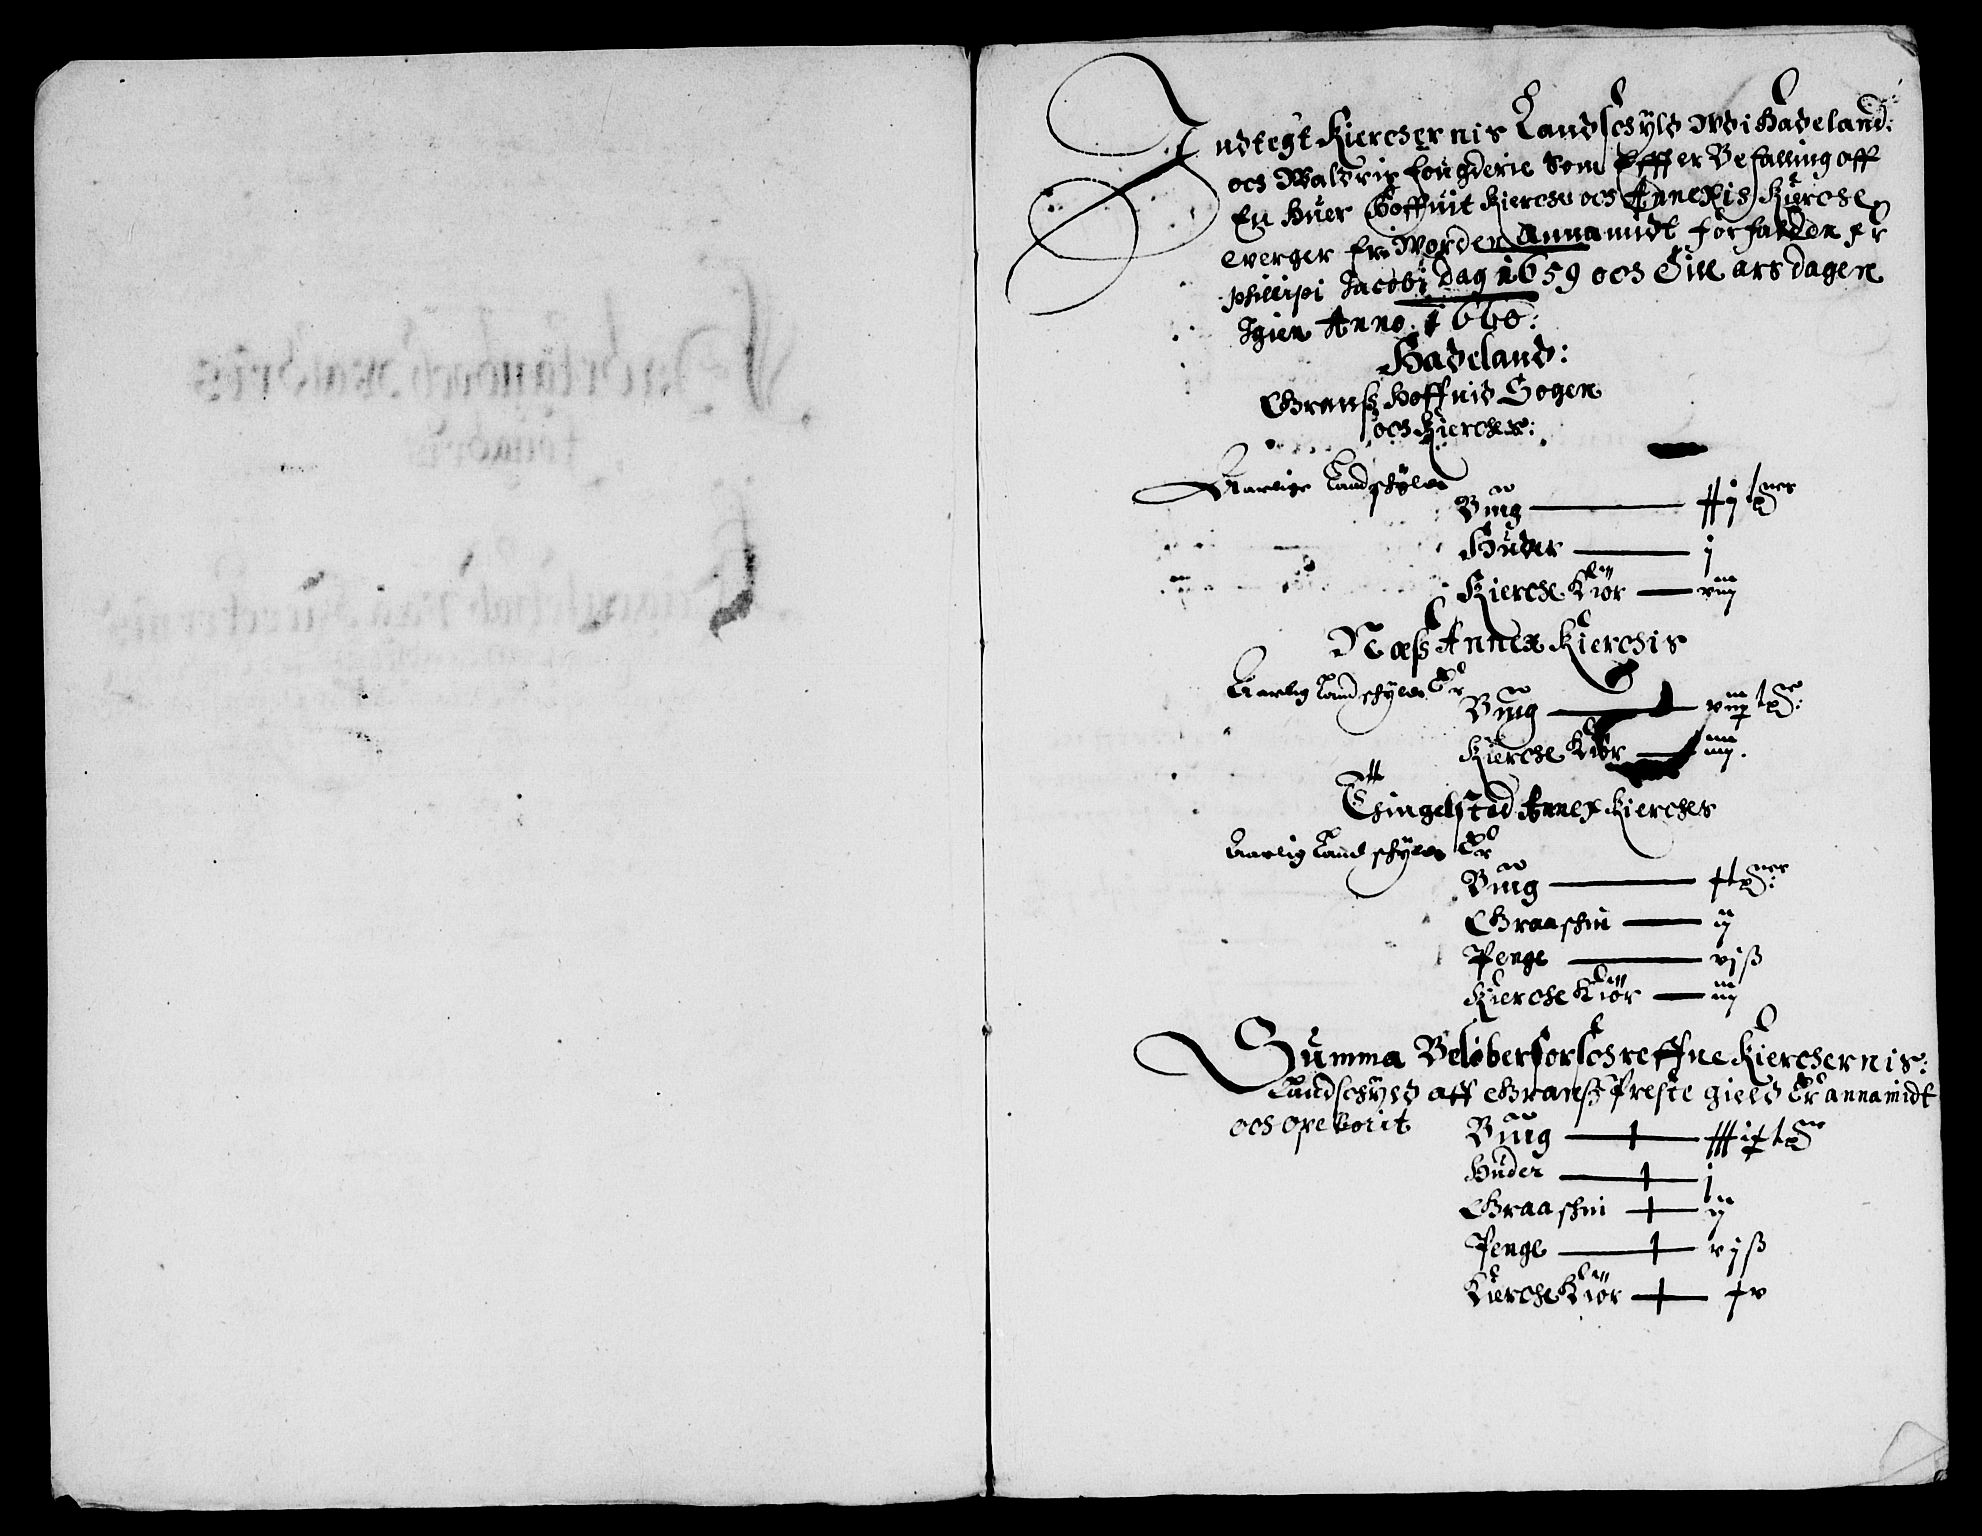 Indtegt Kierchernis Landschyld Udi Hadeland:
och Waldris fougderie Som Efffter Befalling aff
En huer Hoffuit Kierche och Annexis Kierche
werger er worden Annamidt forfalden fr
phillipi Jacobi dag 1659 och Till ars dagen
Igien Anno. 1660:
Hadeland:
Granß Hoffuid Sogen
och Kierche:
Aarlige Landschyld
Bÿg — ##ij txner
Huder — j
Kierche Kiør — viij
Næß Annex Kierchis
Aarlig Landschyld Er
Bÿg — viij tx:
Kierche Kiør — iiij.
Thingelsted Annex Kierches
Aarlig Landschyld Er
Bÿg — + txner:
Graaschin — ij
Penge — vjß
Kierche Kiør — iij
Summa Beløber forschreffne Kierchernis:
Landschyld aff Granß Preste gield Er annamidt
och opeborit
Bÿg —
Huder — j
Graaschin — ij
Penge — vjß
Kierche Kiør — +v